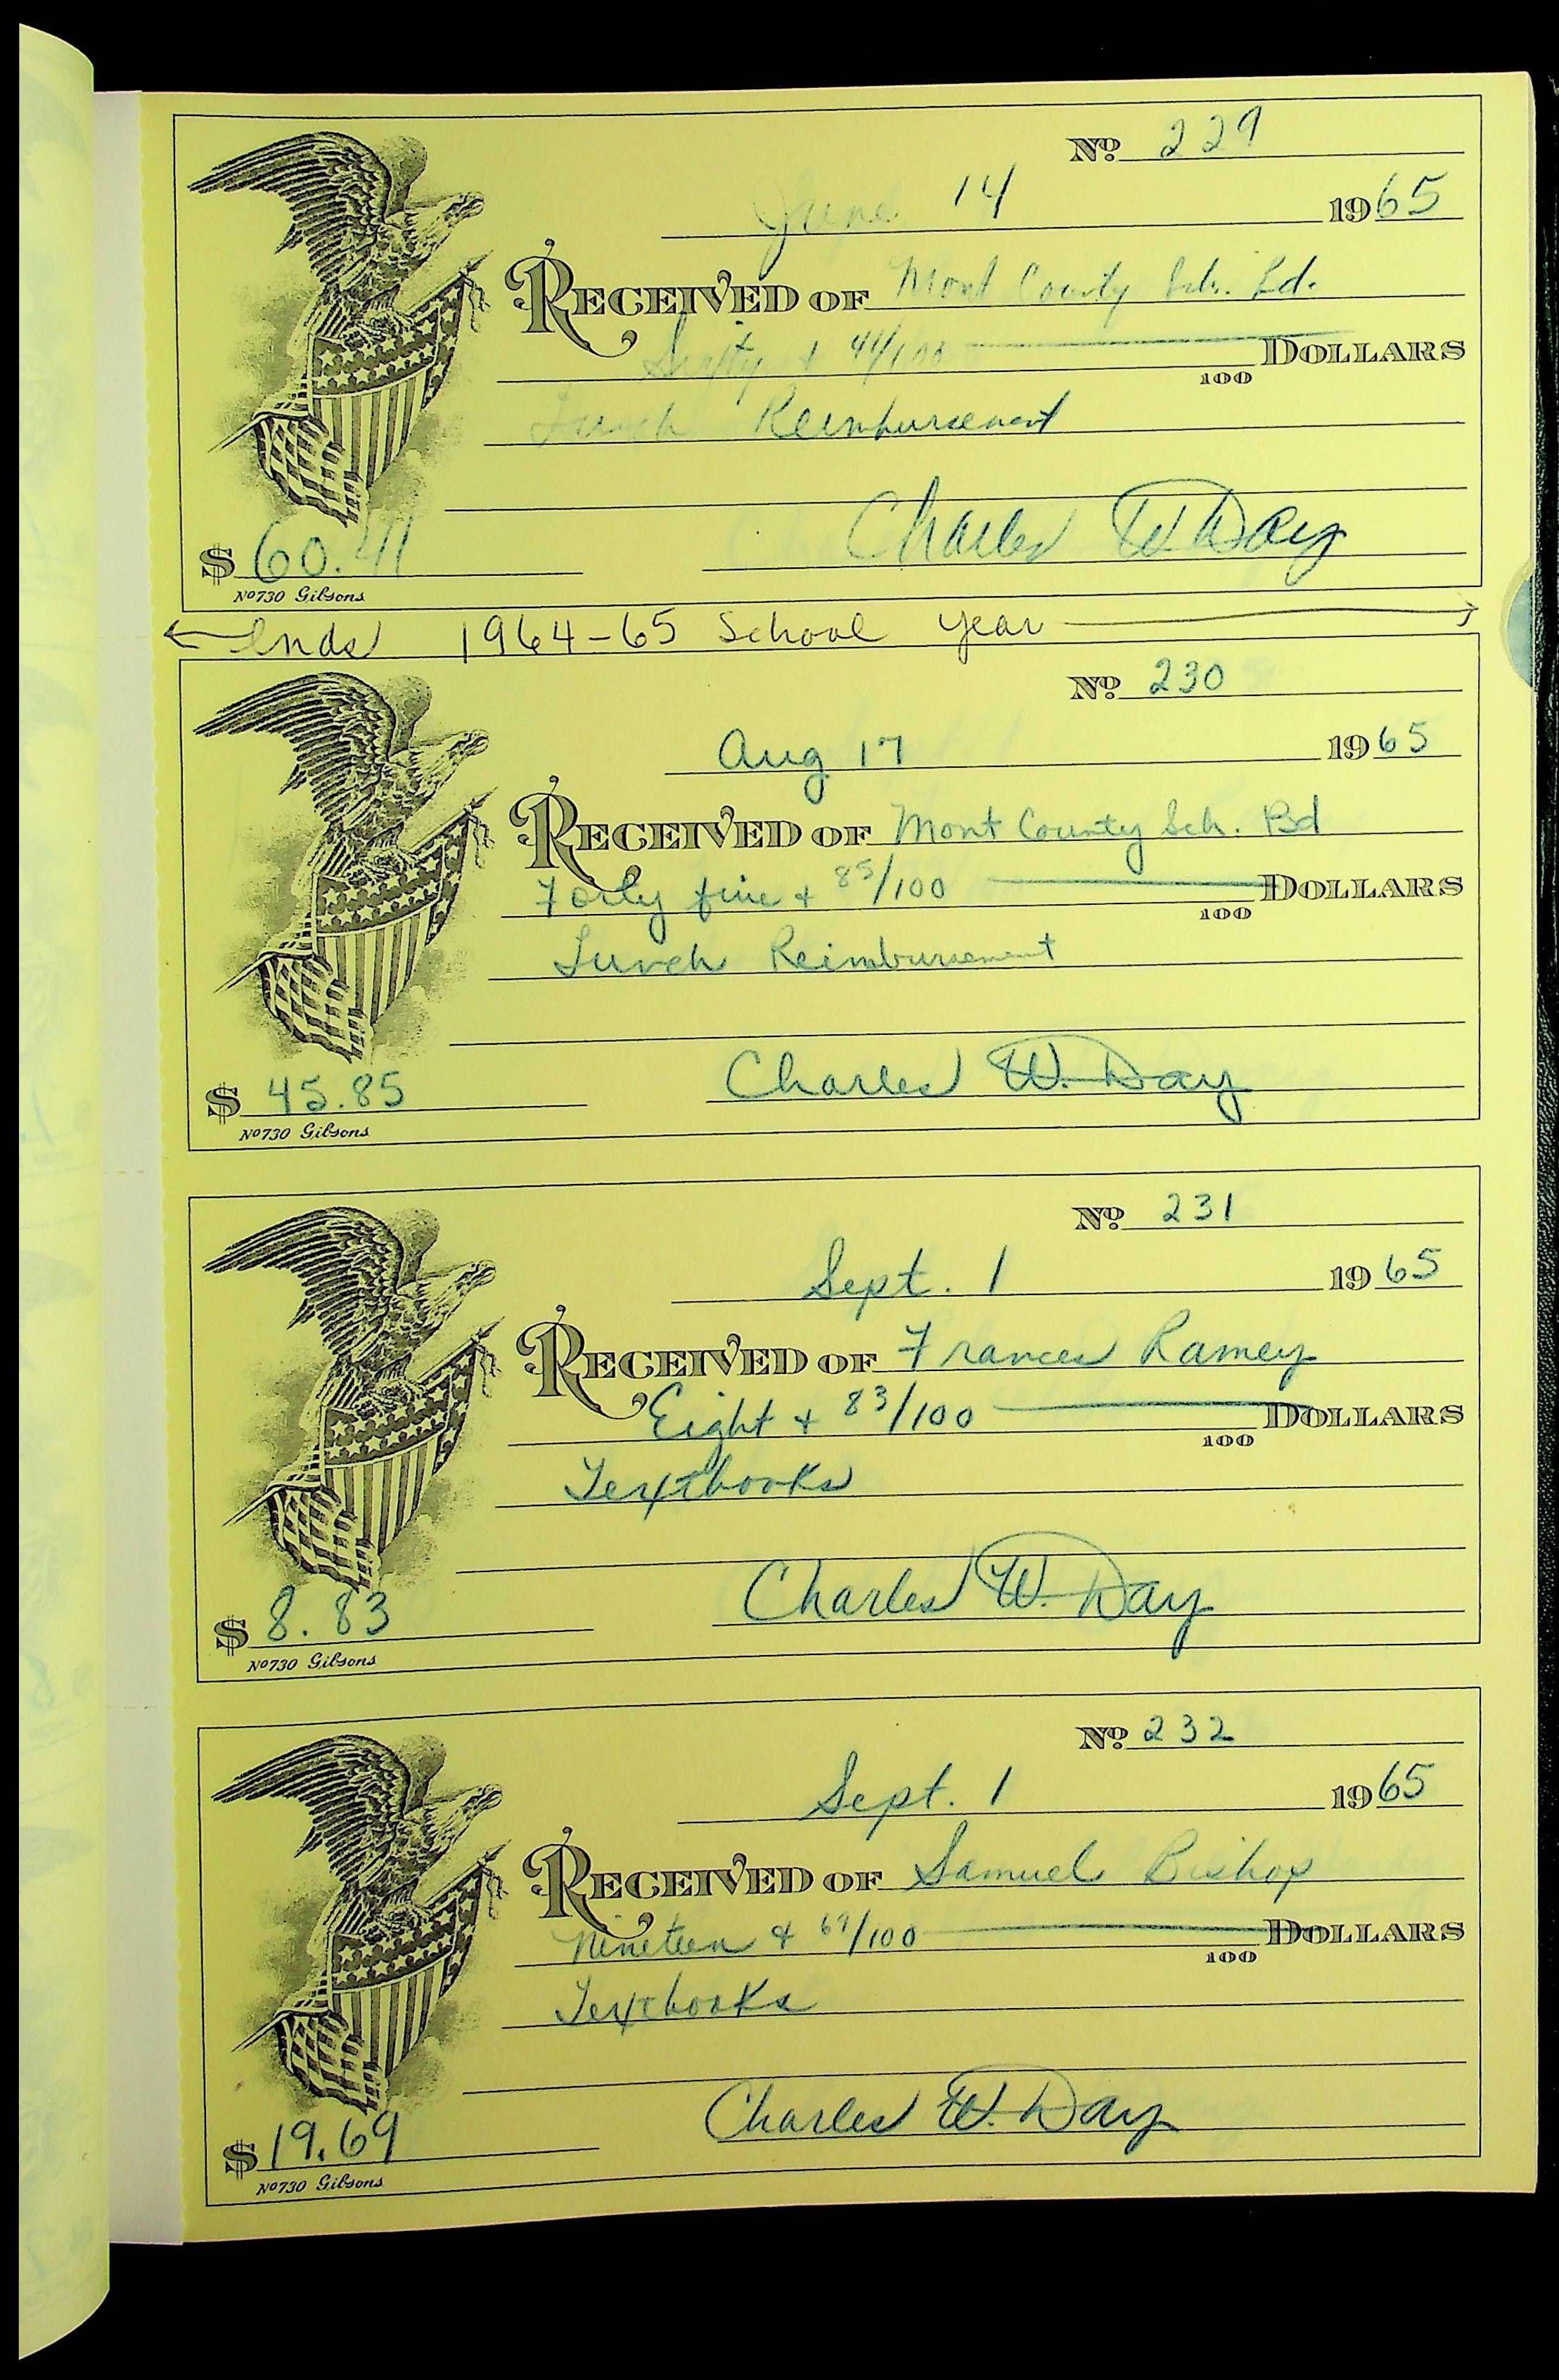 No 229
June 14 1965
RECEIVED OF Mont County Sch. Bd.
Sixty + 41/100 DOLLARS
100
Lunch Reimbursement
Charles W. Day
$ 60.41
No 730 Gibsons
Ends 1964-65 School Year
No 230
Aug 17 1965
RECEIVED OF Mont County Sch. Bd
Forty five + 85/100 DOLLARS
100
Lunch Reimbursement
Charles W. Day
$ 45.85
No 730 Gibsons
No 231
Sept. 1 1965
RECEIVED OF Frances Ramey
Eight + 83/100 DOLLARS
100
Textbooks
Charles W. Day
$ 8.83
No 730 Gibsons
No 232
Sept. 1 1965
RECEIVED OF Samuel Bishop
Nineteen + 69/100 DOLLARS
100
Textbooks
Charles W. Day
$ 19.69
No 730 Gibsons